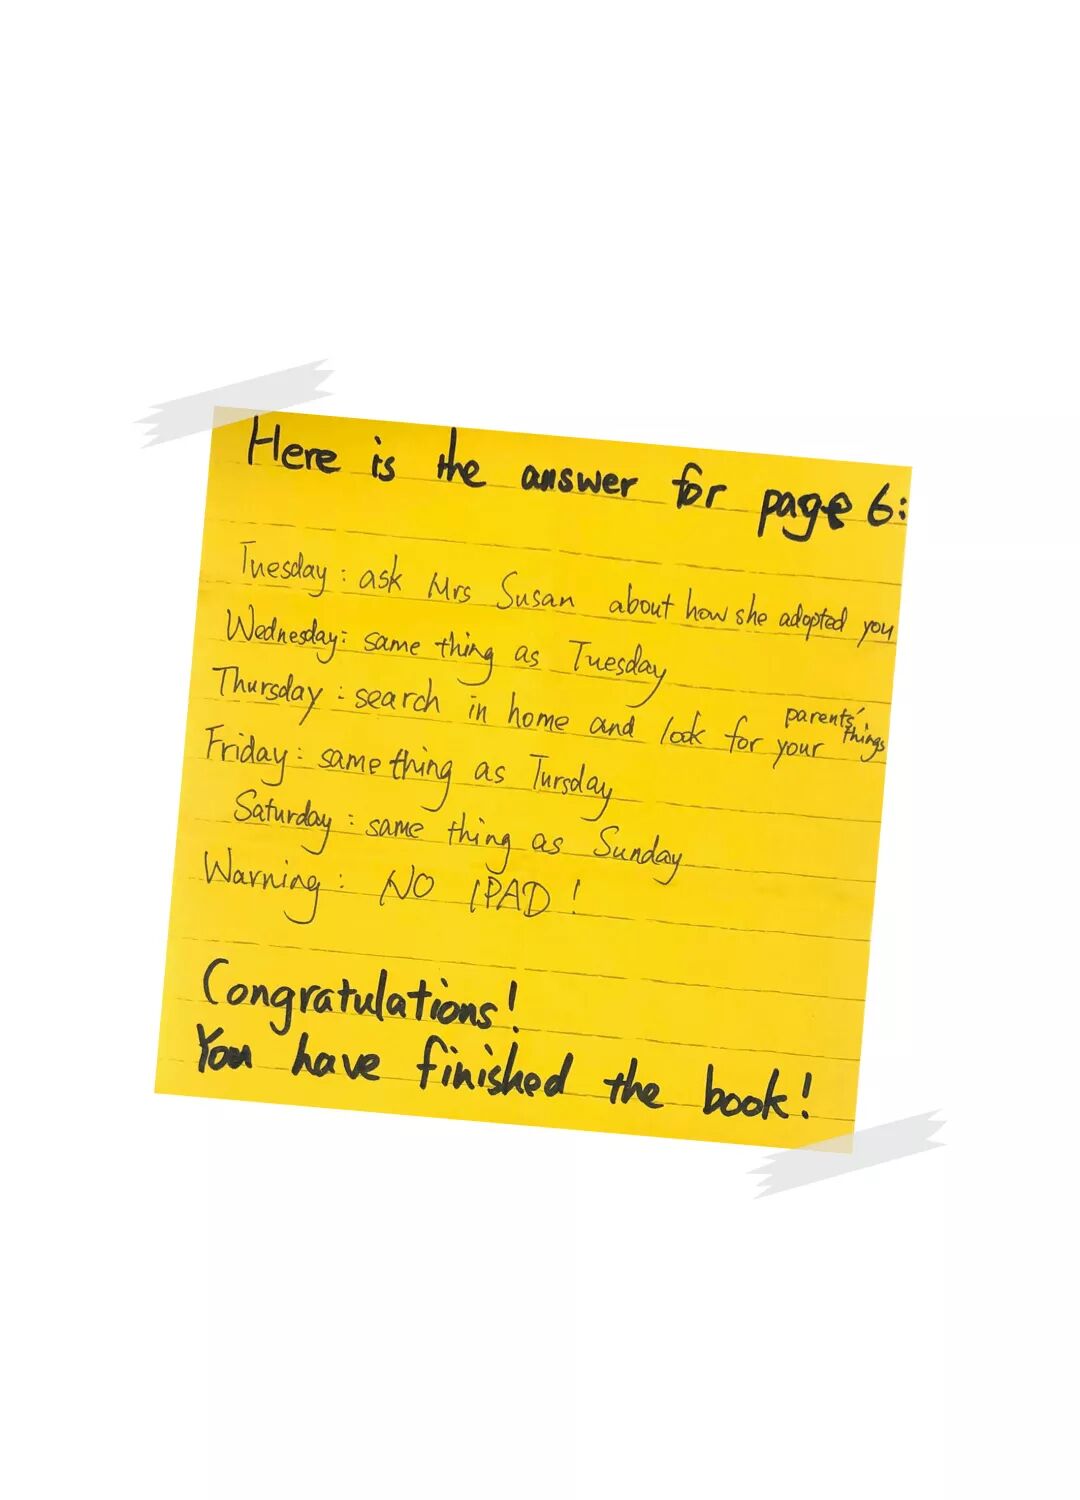 Here is the answer for page 6:
Tuesday: ask Mrs Susan about how she adopted you
Wednesday: same thing as Tuesday
Thursday: search in home and look for your parents' things
Friday: same thing as Tursday
Saturday: same thing as Sunday
Warning: NO IPAD!
Congratulations!
You have finished the book!